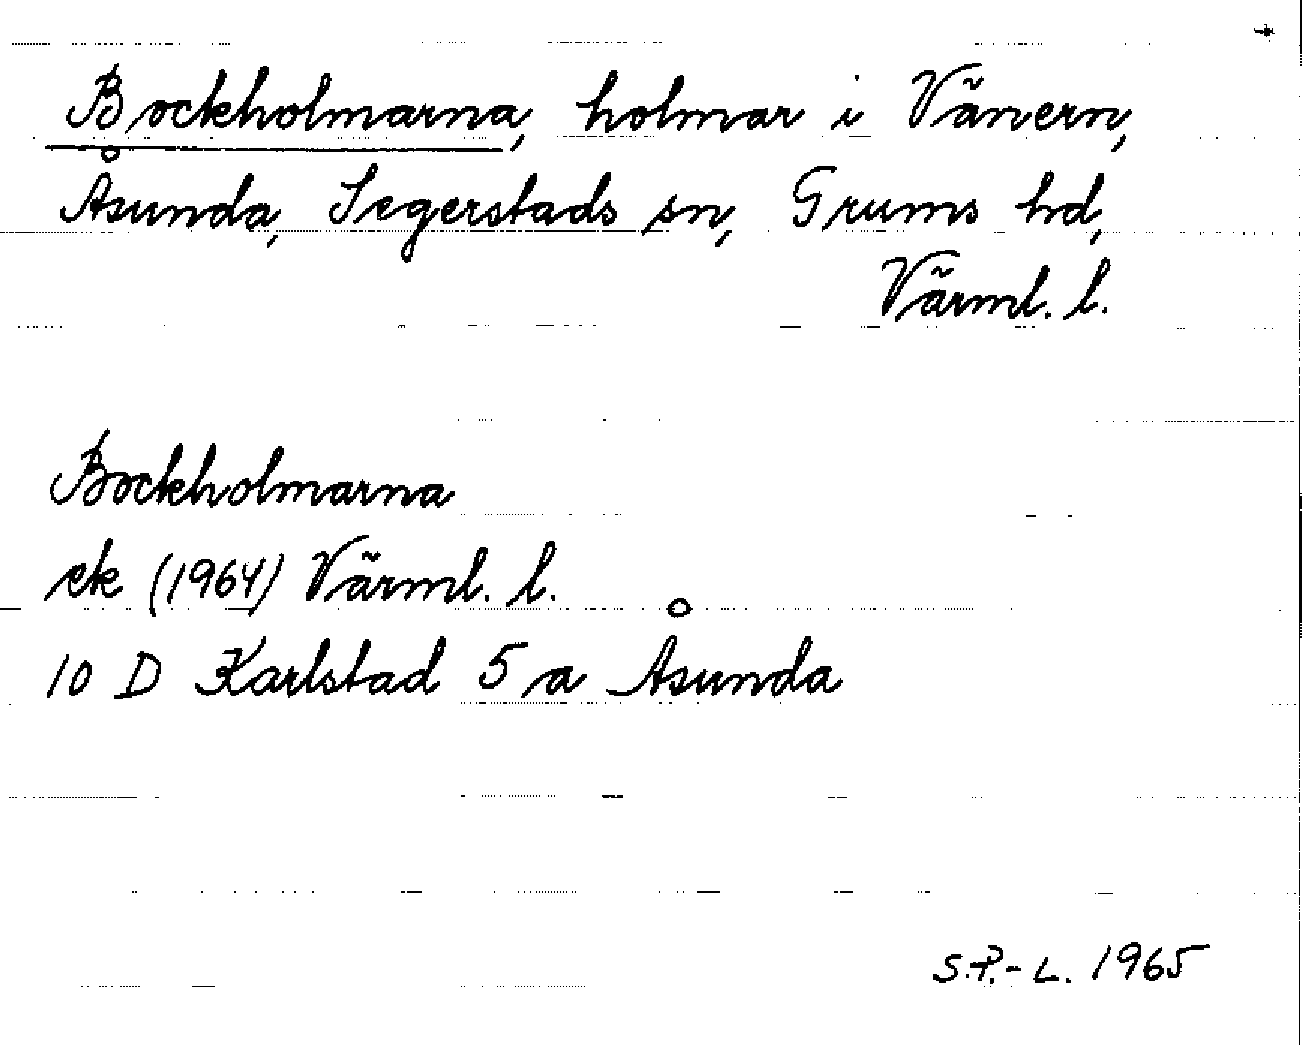 Bockholmarna, holmar i Vänern,
Åsunda, Segerstads sn, Grums hd,
Värml. l.
Bockholmarna
ek (1964) Värml. l.
10 D Karlstad 5 a Åsunda
S.P.-L. 1965